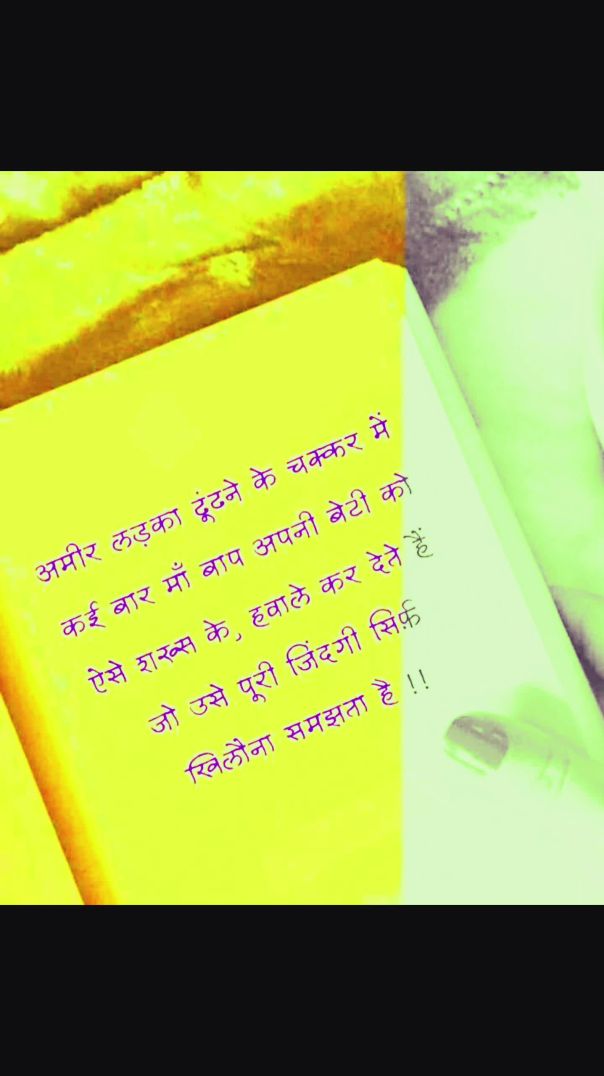 अमीर लड़का ढूंढने के चक्कर में
कई बार माँ बाप अपनी बेटी को
ऐसे शख्स के, हवाले कर देते हैं
जो उसे पूरी जिंदगी सिर्फ़
खिलौना समझता है !!